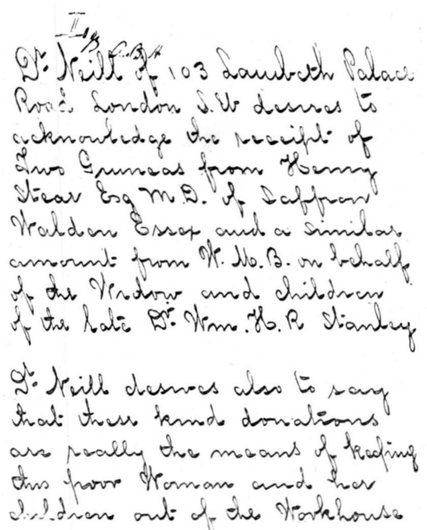 II
Dr Neill of 103 Lambeth Palace
Road London S.W desires to
acknowledge the receipt of
Two Guineas from Henry
Stear Esq M.D. of Saffron
Walden Essex and a similar
amount from W. M. B. on behalf
of the Widow and children
of the late Dr Wm. H. R Stanley
Dr Neill desires also to say
that these kind donations
are really the means of keeping
this poor Woman and her
children out of the Workhouse